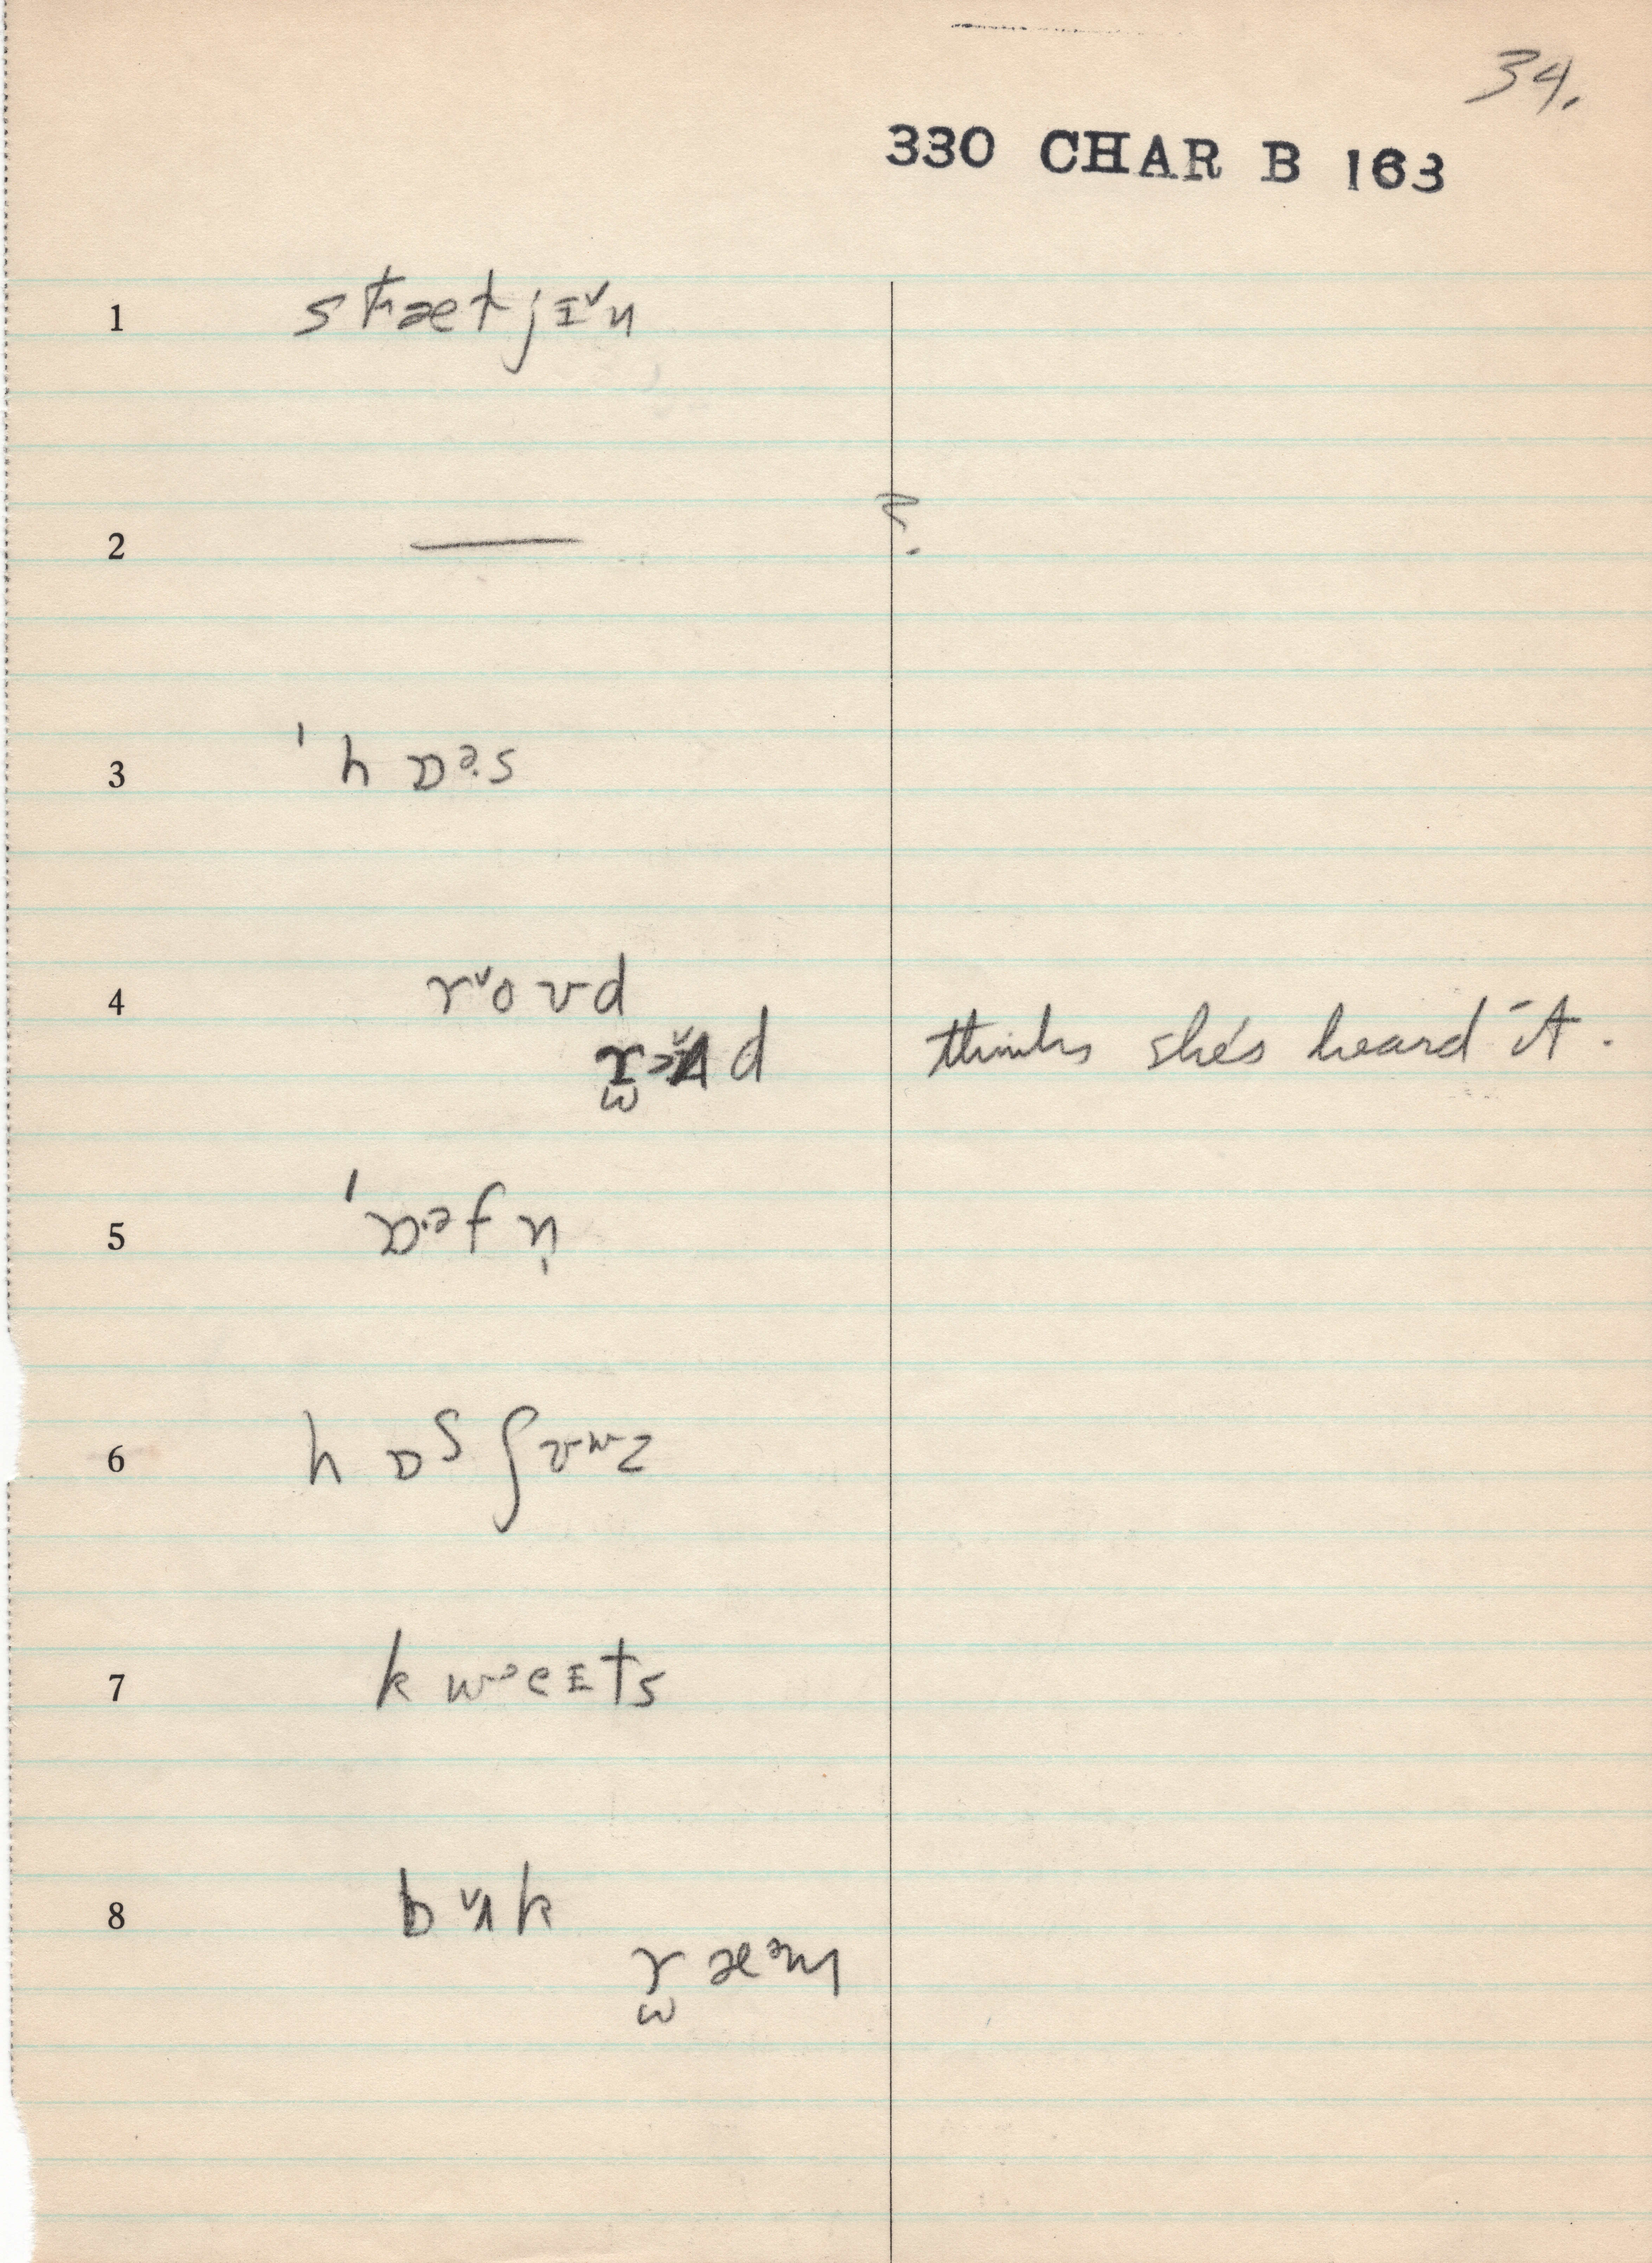 34.
330 CHAR B 163
1 stæt jɪ˅n
2 — ?
3 ˈh ɒə̣s
4 r˅o vd
d thinks she's heard it.
5 ˈɒ·əf n̩
6 h ɒs ʃɜwz
7 k wᵊeɪts
8 b ˅ʌk
r̫ æᵊm